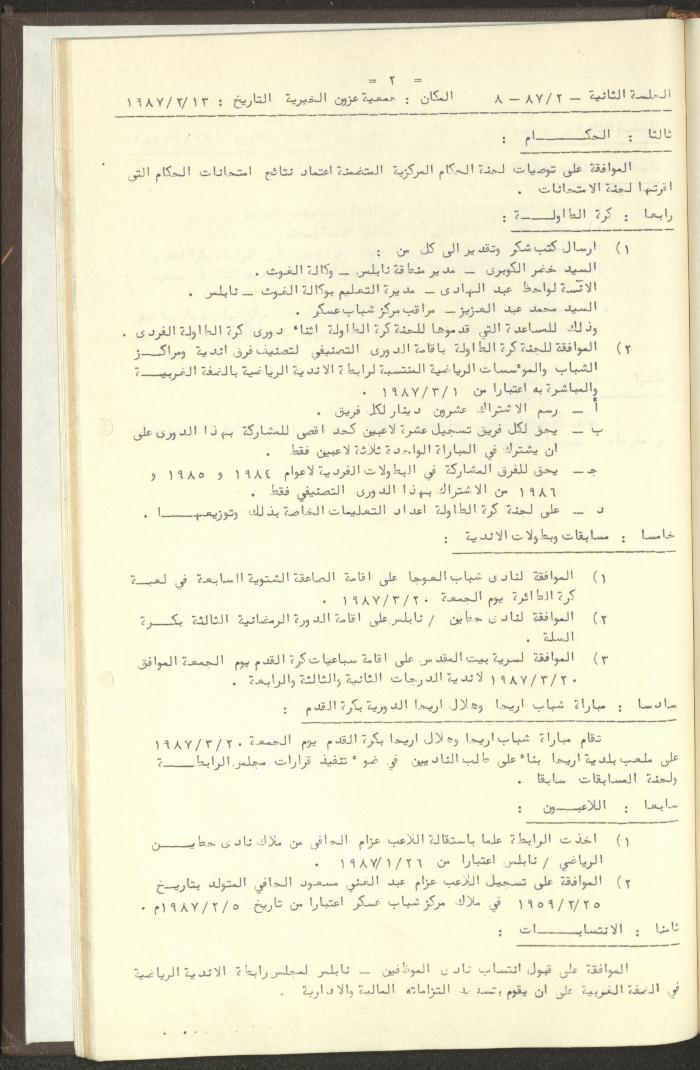 = ٢ =
الجلسة الثانية – ٨٧/٢ – ٨ المكان : جمعية عزون الخيرية التاريخ : ١٩٨٧/٢/١٣
ثالثا : الحكـــــــام :
الموافقة على توصيات لجنة الحكام المركزية المتضمنة اعتماد نتائج امتحانات الحكام التي
اقرتها لجنة الامتحانات .
رابعا : كرة الطاولـــــة :
١) ارسال كتب شكر وتقدير الى كل من :
السيد خضر الكوبرى – مدير منطقة نابلس – وكالة الغوث .
الانسة لواحظ عبد الهادى – مديرة التعليم بوكالة الغوث – نابلس .
السيد محمد عبد العزيز – مراقب مركز شباب عسكر .
وذلك للمساعدة التي قدموها للجنة كرة الطاولة اثناء دورى كرة الطاولة الفردى .
٢) الموافقة للجنة كرة الطاولة باقامة الدورى التصنيفي لتصنيف فرق اندية ومراكــز
الشباب والمؤسسات الرياضية المنتسبة لرابطة الاندية الرياضية بالضفة الغربيــة
والمباشرة به اعتبارا من ١٩٨٧/٣/١ .
أ – رسم الاشتراك عشرون دينار لكل فريق .
ب – يحق لكل فريق تسجيل عشرة لاعبين كحد اقصى للمشاركة بهذا الدورى على
ان يشترك في المباراة الواحدة ثلاثة لاعبين فقط .
جـ – يحق للفرق المشاركة في البطولات الفردية لاعوام ١٩٨٤ و ١٩٨٥ و
١٩٨٦ من الاشتراك بهذا الدورى التصنيفي فقط .
د – على لجنة كرة الطاولة اعداد التعليمات الخاصة بذلك وتوزيعهــــا .
خامسا : مسابقات وبطولات الاندية :
١) الموافقة لنادى شباب العوجا على اقامة الصاعقة الشتوية السابعة في لعبــة
كرة الطائرة يوم الجمعة ١٩٨٧/٣/٢٠ .
٢) الموافقة لنادى حطين / نابلس على اقامة الدورة الرمضانية الثالثة بكــرة
السلة .
٣) الموافقة لسرية بيت المقدس على اقامة سباعيات كرة القدم يوم الجمعة الموافق
١٩٨٧/٣/٢٠ لاندية الدرجات الثانية والثالثة والرابعة .
سادسا : مباراة شباب اريحا وهلال اريحا الدورية بكرة القدم :
تقام مباراة شباب اريحا وهلال اريحا بكرة القدم يوم الجمعة ١٩٨٧/٣/٢٠
على ملعب بلدية اريحا بناء على طلب الناديين في ضوء تنفيذ قرارات مجلس الرابطـــة
ولجنة المسابقات سابقا .
سابعا : اللاعبـــون :
١) اخذت الرابطة علما باستقالة اللاعب عزام الحافي من ملاك نادى حطيـــن
الرياضي / نابلس اعتبارا من ١٩٨٧/١/٢٦ .
٢) الموافقة على تسجيل اللاعب عزام عبد الغني مسعود الحافي المتولد بتاريــخ
١٩٥٩/٢/٢٥ في ملاك مركز شباب عسكر اعتبارا من تاريخ ١٩٨٧/٢/٥م .
ثامنا : الانتسابـــــات :
الموافقة على قبول انتساب نادى الموظفين – نابلس لمجلس رابطة الاندية الرياضية
في الضفة الغربية على ان يقوم بتسديد التزاماته المالية والادارية .